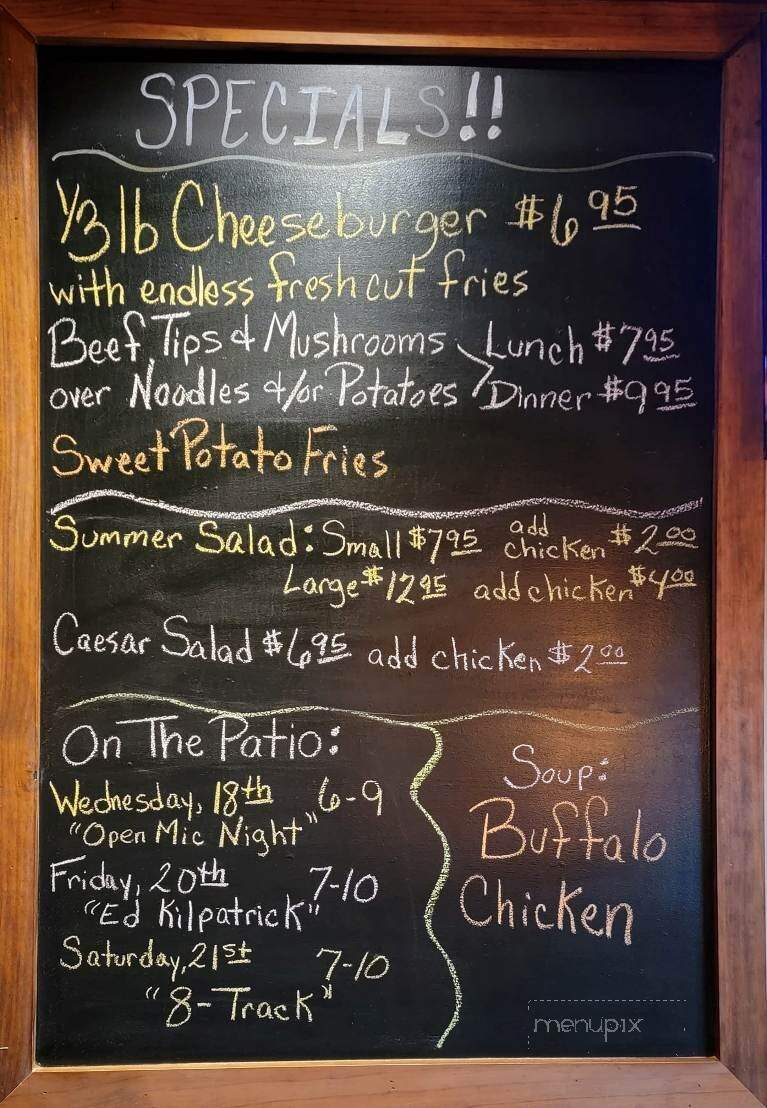 SPECIALS!!
1/3 lb Cheeseburger $6 95
with endless fresh cut fries
Beef Tips & Mushrooms Lunch $7 95
over Noodles &/or Potatoes Dinner $9 95
Sweet Potato Fries
Summer Salad: Small $7 95 add chicken $2 00
Large $12 95 add chicken $4 00
Caesar Salad $6 95 add chicken $2 00
On The Patio:
Wednesday, 18th 6-9
"Open Mic Night"
Friday, 20th 7-10
"Ed Kilpatrick"
Saturday, 21st 7-10
"8-Track"
Soup:
Buffalo
Chicken
menupix